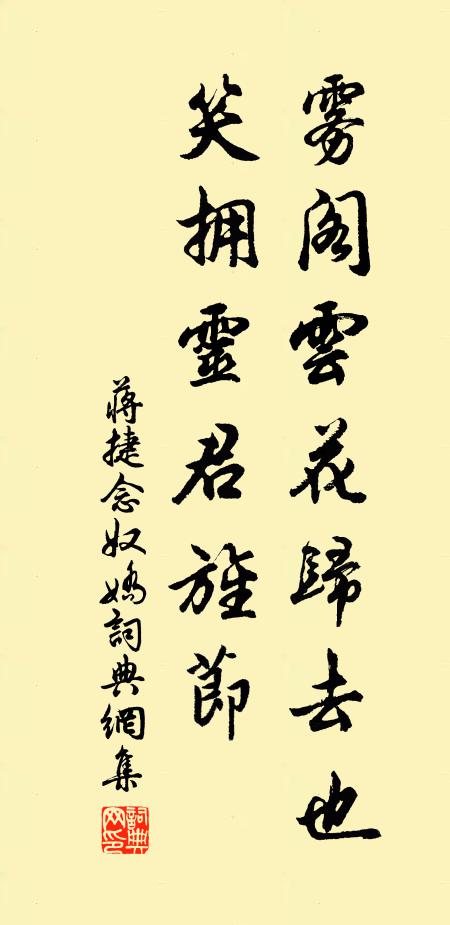 雾閣雲花歸去也
笑拥靈君旌節
蔣捷念奴嬌詞典網集
詞典网印